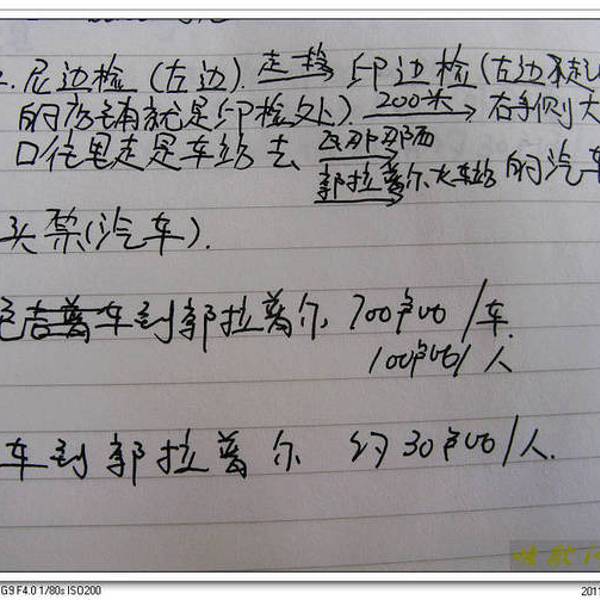 尼边检(左边) 走路 印边检(左边不起眼
的店铺就是印检处) 200米 右手侧大
口往里走是车站 去 瓦那那西
郭拉普尔火车站 的汽车
买票(汽车).
包吉普车到郭拉普尔 700卢比/车.
100卢比/人
车到郭拉普尔 约30卢比/人.
G9 F4.0 1/80s ISO200
2011